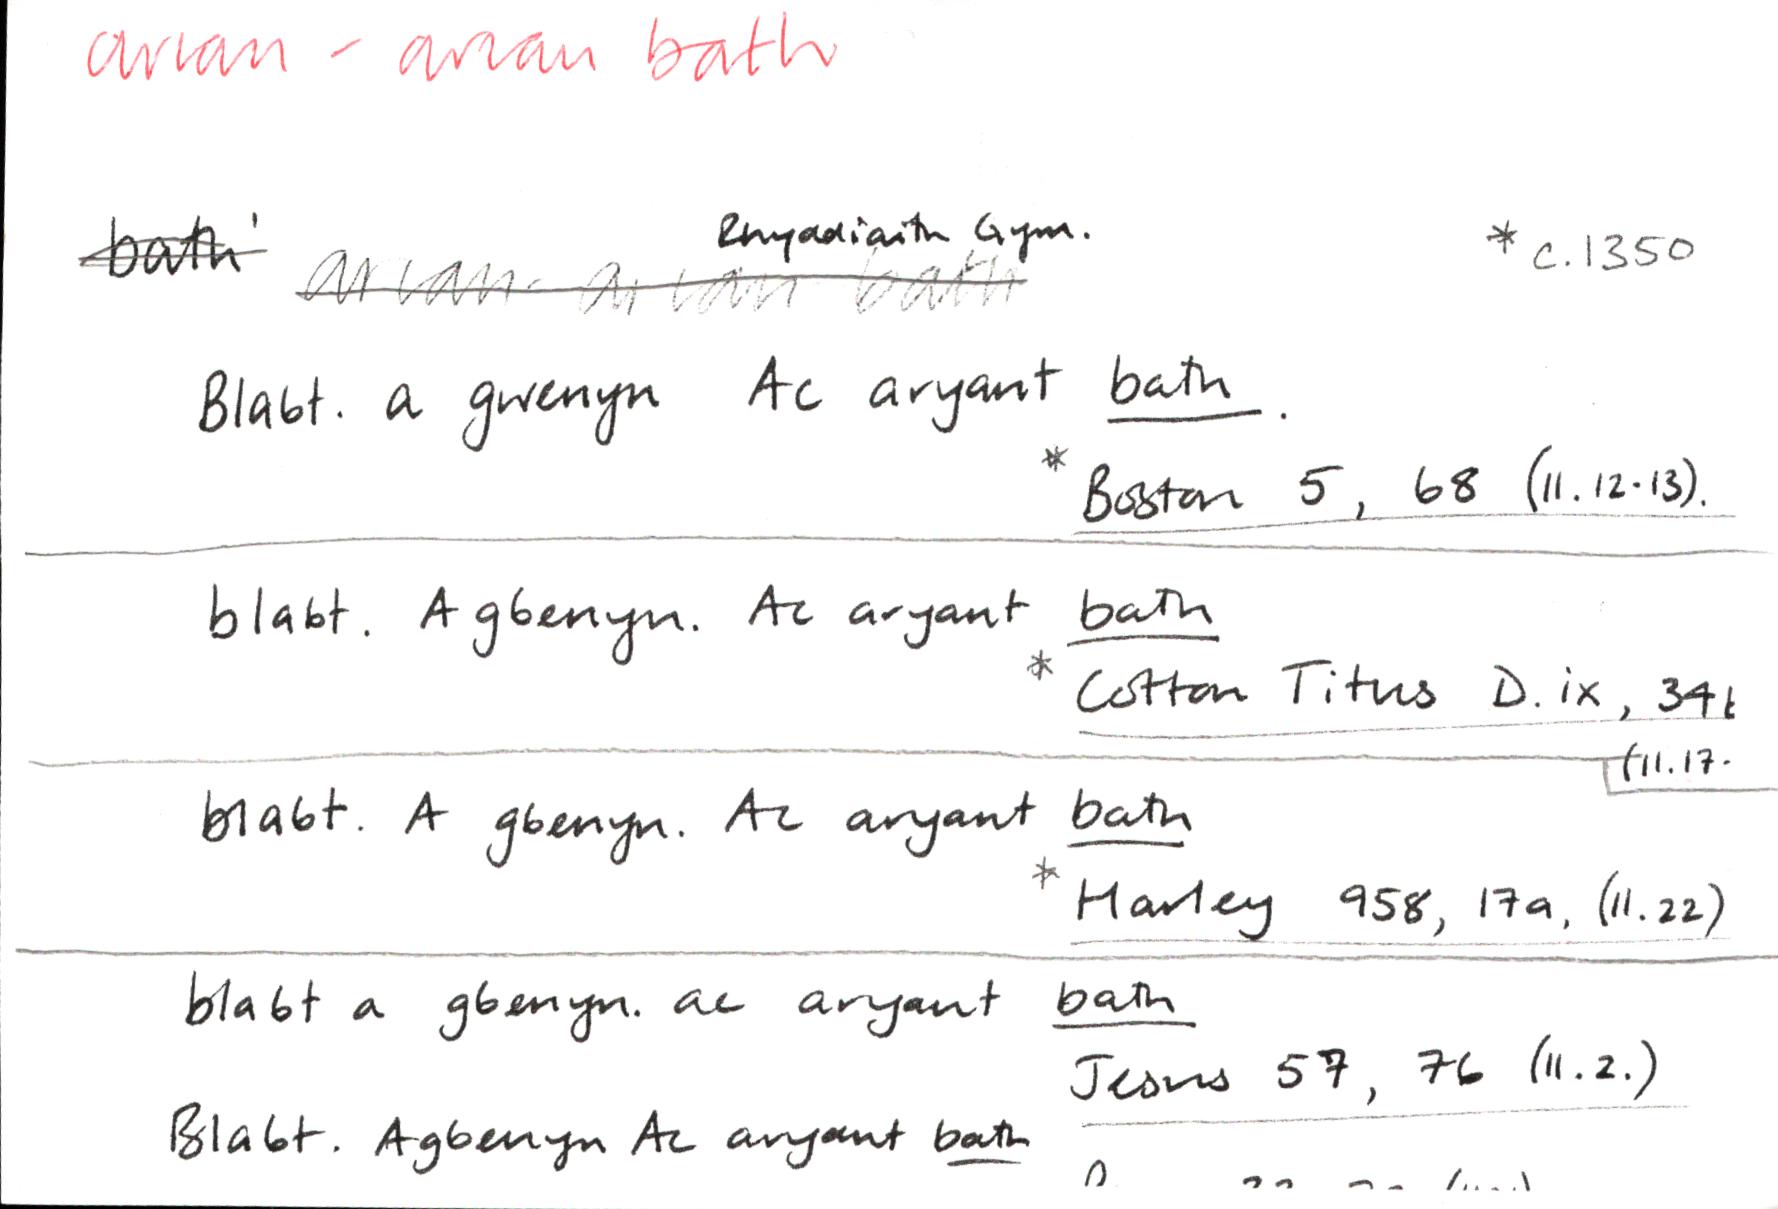 arian - arian bath
bath' Rhyddiaith Gym. * c.1350
arian - arian bath
Bla6t. a gwenyn Ac aryant bath.
* Boston 5, 68 (ll. 12-13).
bla6t. A g6enyn. Ac aryant bath
* Cotton Titus D. ix, 34
(ll. 17.
bla6t. A g6enyn. Ac aryant bath
* Harley 958, 17a, (ll. 22)
bla6t a g6enyn. ac aryant bath
Jesus 57, 76 (ll. 2.)
Bla6t. Ag6enyn Ac aryant bath